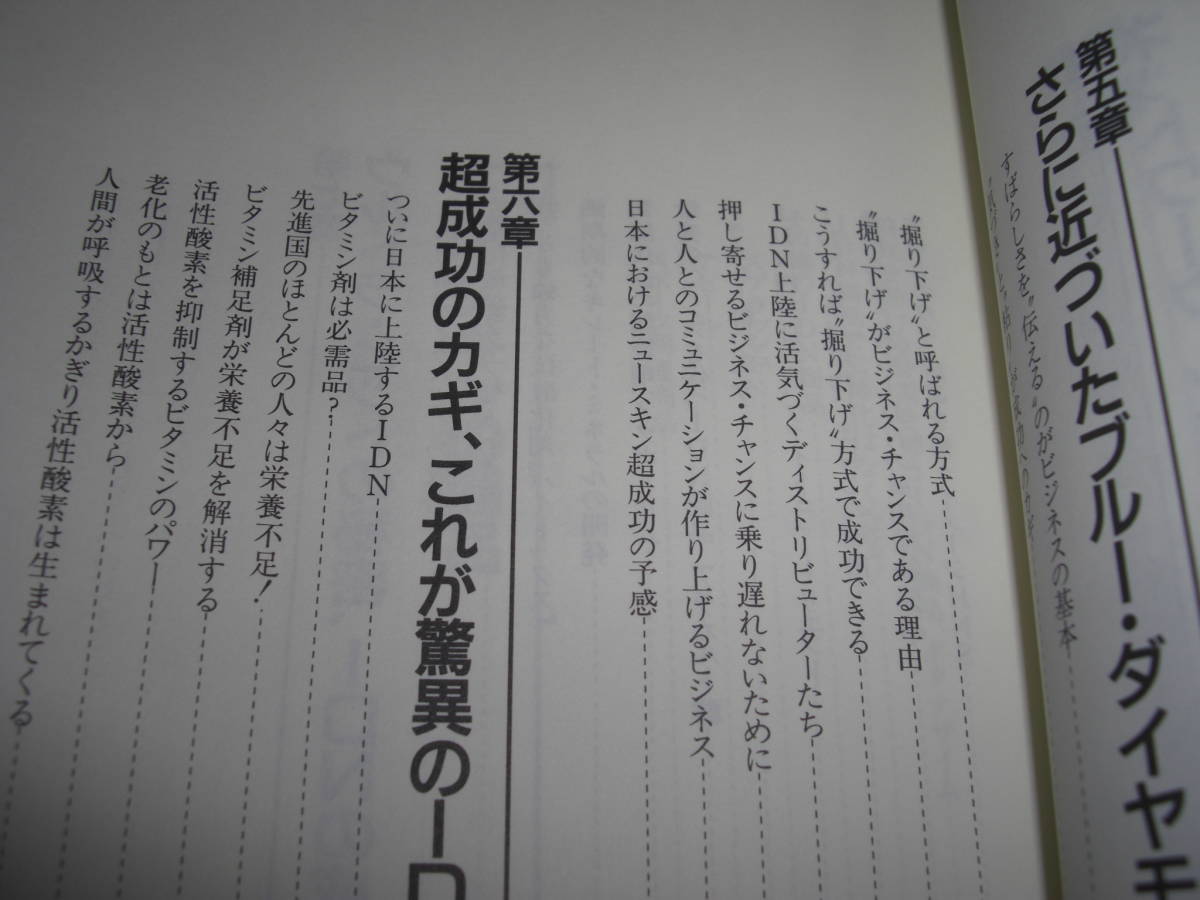 第五章
さらに近づいたブルー・ダイヤモ
すばらしさを〝伝える〟のがビジネスの基本
〝掘り下げ〟と呼ばれる方式
〝掘り下げ〟がビジネス・チャンスである理由
こうすれば〝掘り下げ〟方式で成功できる
IDN上陸に活気づくディストリビューターたち
押し寄せるビジネス・チャンスに乗り遅れないために
人と人とのコミュニケーションが作り上げるビジネス
日本におけるニュースキン超成功の予感
第六章
超成功のカギ、これが驚異のID
ついに日本に上陸するIDN
ビタミン剤は必需品?
先進国のほとんどの人々は栄養不足!
ビタミン補足剤が栄養不足を解消する
活性酸素を抑制するビタミンのパワー
老化のもとは活性酸素から?
人間が呼吸するかぎり活性酸素は生まれてくる